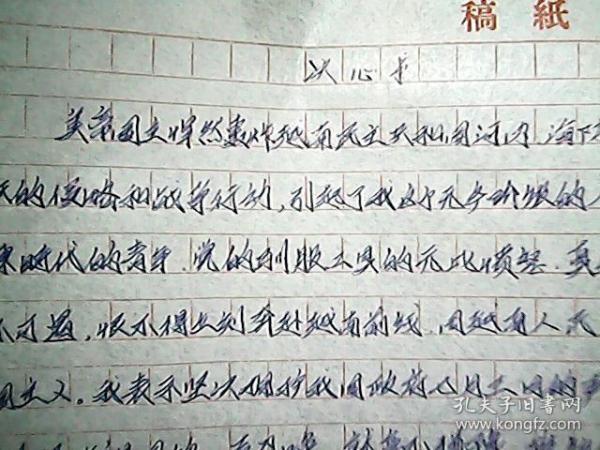 稿紙
决心书
美帝国主悍然轰炸越南民主共和国河内、海
的侵略和战争行动，引起了我这个无产阶级的
时代的青年、党的驯服工具的无比愤怒。真
不可遏，恨不得立刻奔赴越南前线，同越南人民
国主义。我表示坚决拥护我国政府七月
孔夫子旧书网
www.kongfz.com